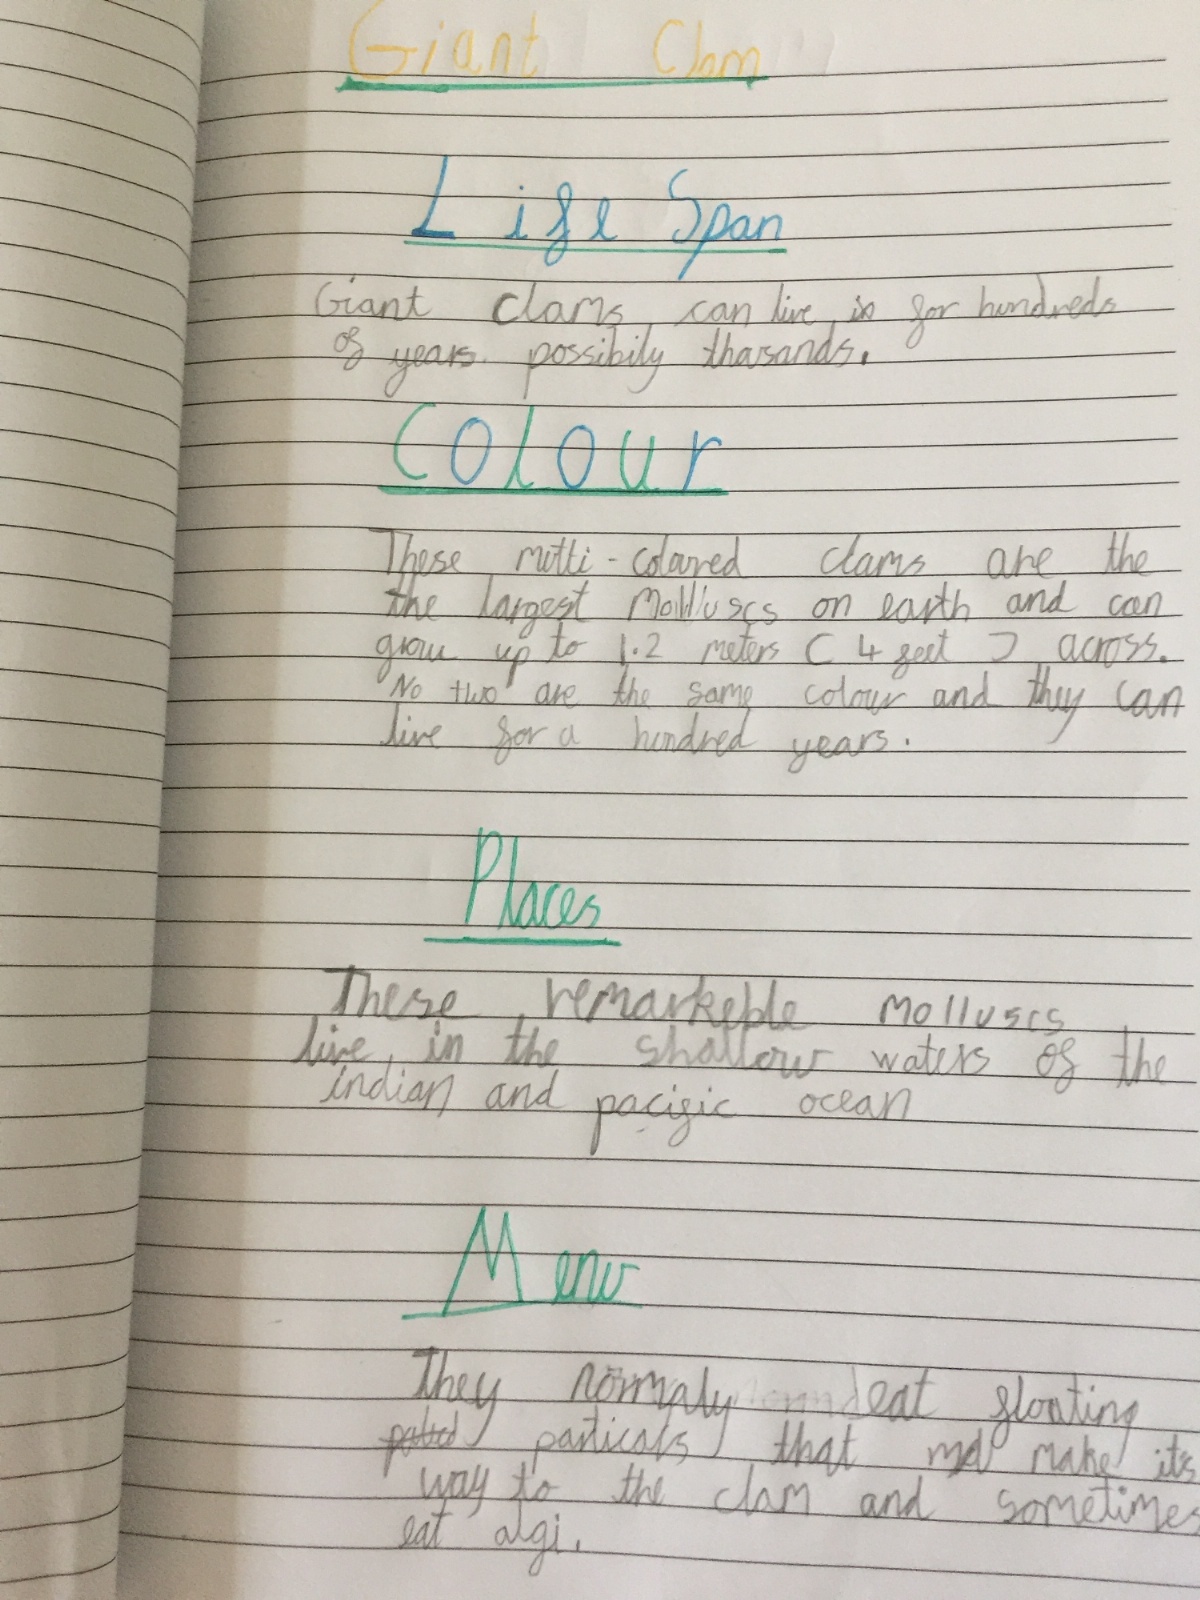 Giant Clam
Life Span
Giant clams can live is for hundreds
of years. possibily thasands.
Colour
These mutti-colared clams are the
the largest Molluscs on earth and can
grow up to 1.2 meters ( 4 feet ) across.
No two are the same colour and they can
live for a hundred years.
Places
These remarkeble molluscs
live in the shallow waters of the
indian and pacific ocean
Menu
They normaly eat floating
particals that make its
way to the clam and sometimes
eat algi.